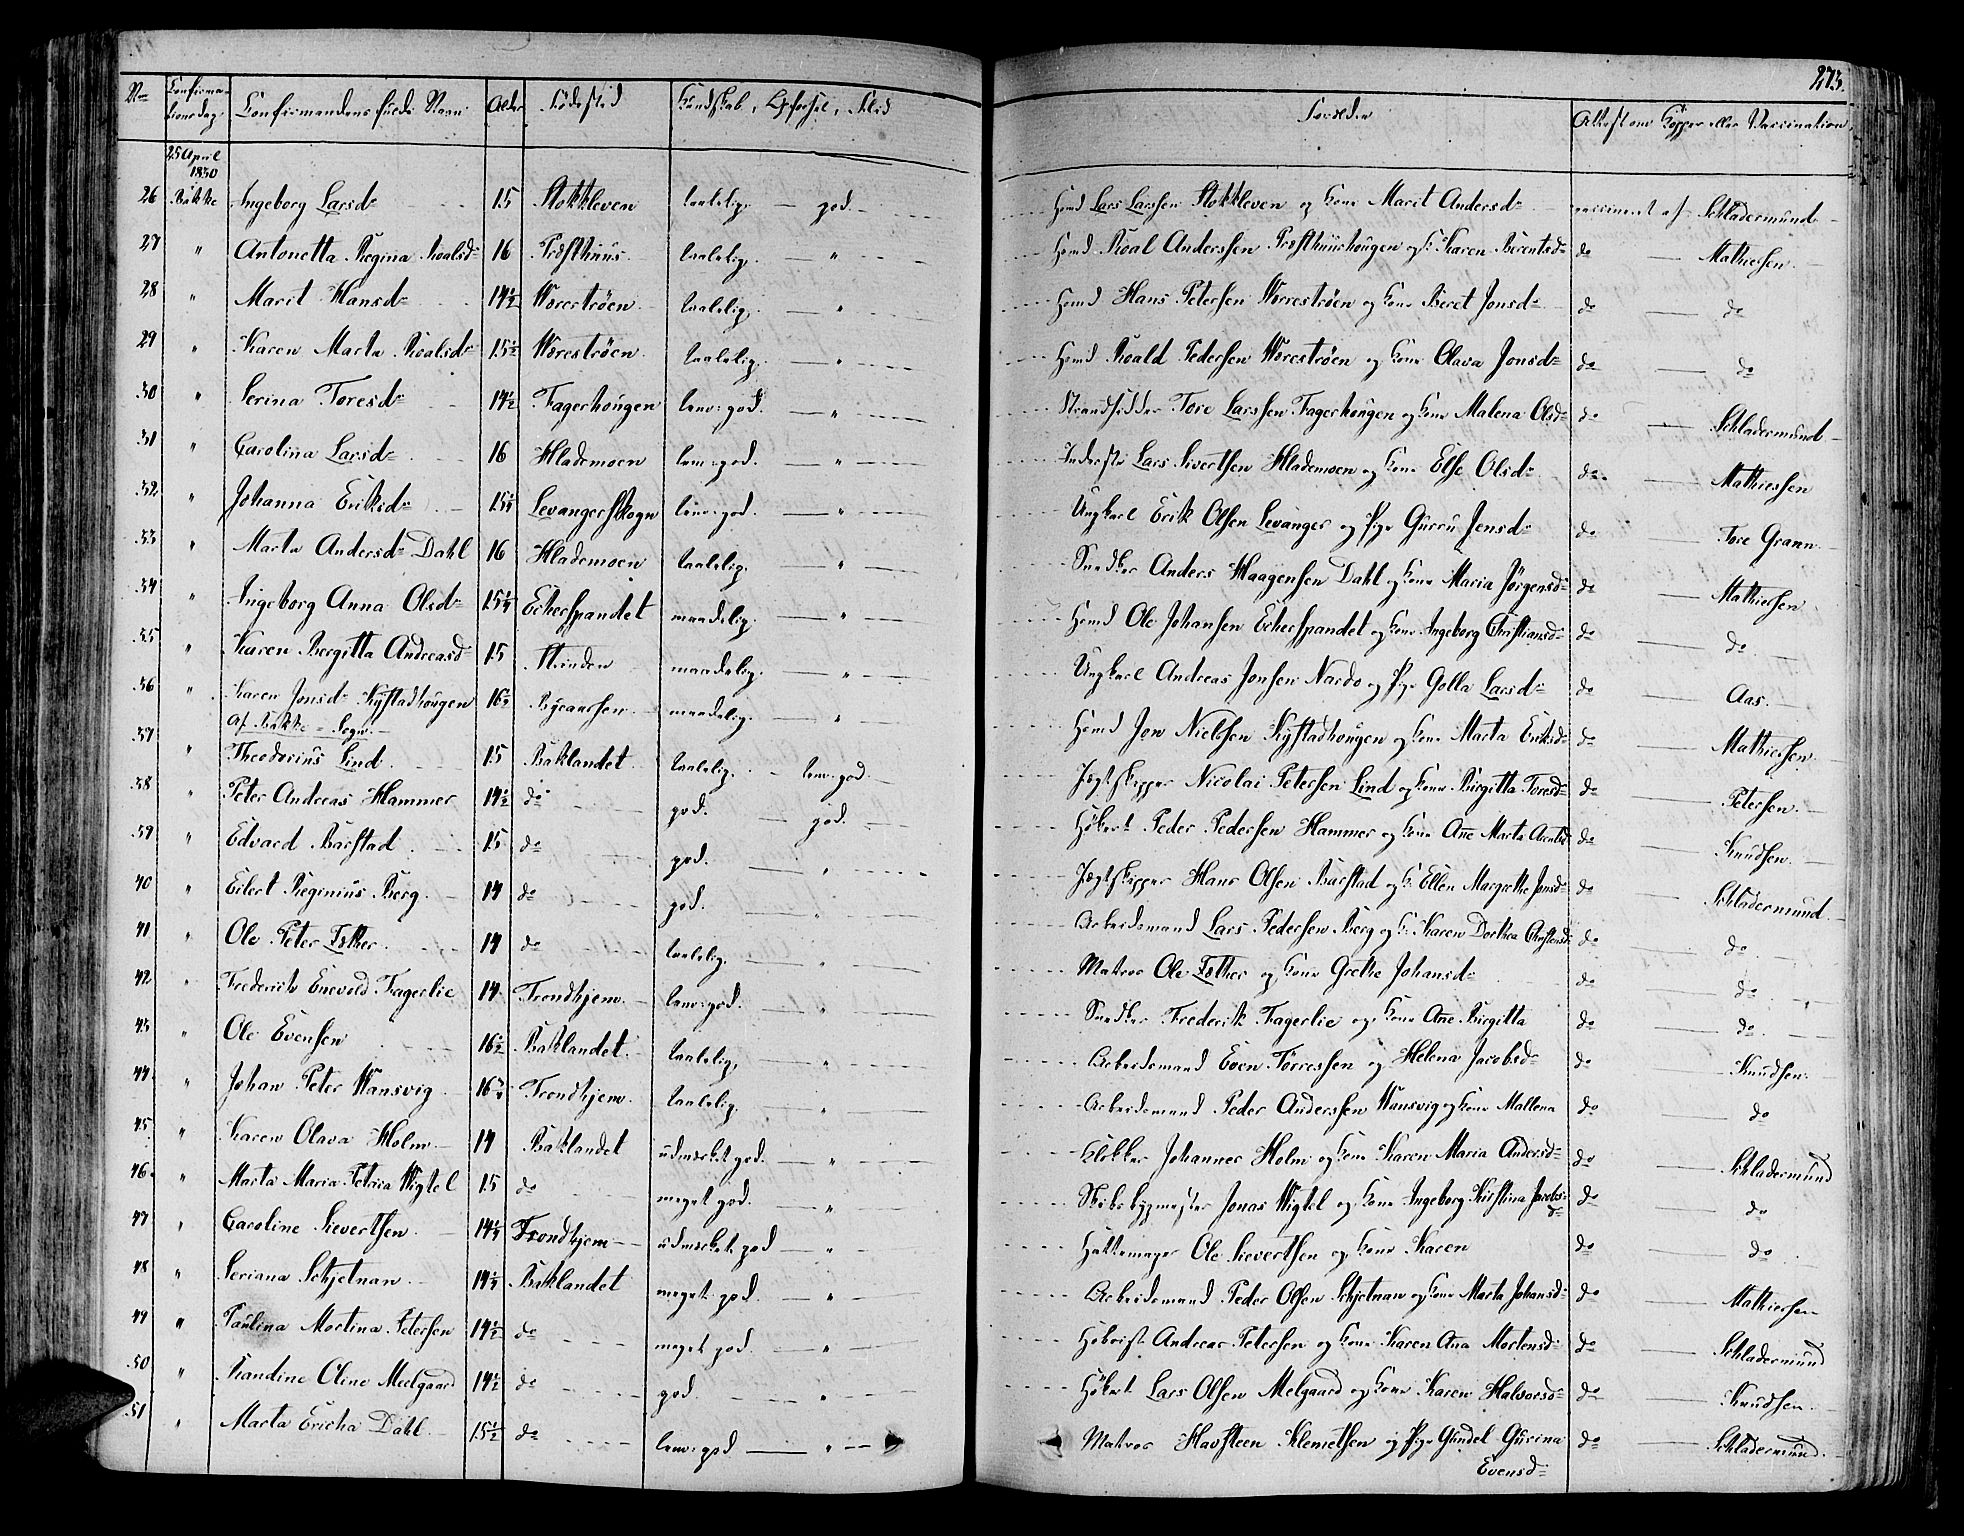 273.
No Confirmationsdag Confirmandens fulde Navn Alder Fødested Kundskab, Opførsel, Flid Forældre Attest om Kopper eller Vaccination
25 April 1830
26 Bakke Ingeborg Larsd 15 Stokkleven taalelig. god. Huusmd Lars Larssen Stokkleven og Kone Marit Andersd vaccineret af Schladermund
27 " Antonetta Regina Roalsd 16 Præsthuus taalelig. " Huusmd Roal Anderssen Præsthuushougen og K Karen Berentsd do Mathiesen.
28 " Marit Hansd 14½ Worrestrøen taalelig. " Huusmd Hans Petersen Worrestrøen og Kone Beret Jonsd do do
29 " Karen Marta Roalsd 15½ Worestrøen. taalelig. " Huusmd Roald Pedersen Worestrøen og Kone Olava Jonsd do do
30 " Serina Toresd 14½ Fagerhougen temi: god. " Strandsidder Tore Larssen Fagerhougen og Kone Malena Olsd do Schladermund
31 " Carolina Larsd 16 Hlademoen tem: god. " Inderste Lars Sivertsen Hlademoen og Kone Else Olsd do Mathiessen
32 " Johanna Eriksd Levangerskogn tem: god. " Ungkarl Erik Olsen Levanger og Pige Gurru Jensd do Tore Grann
33 " Marta Andersd Dahl 16 Hlademoen taalelig. " Anders Haagensen Dahl og Kone Maria Jørgensd do Mathiesen
34 " Ingeborg Anna Olsd Echerspandet maadelig. " Huusmd Ole Johansen Echerspandet og Kone Ingeborg Christiansd do do
35 " Karen Bergitta Andreasd 15 Strinden maadelig. " Ungkarl Andreas Jonsen Nardo og Pige Golla Larsd do Aas.
36 " Karen Jonsd Kystadhougen 16½ Byeaassen maadelig. " Huusmd Jon Nielssen Kystadhougen og Kone Marta Eriksd do Mathiessen
Af Bakke-Sogn.
37 " Theodorius Lind. 15 Baklandet taalelig. tem: god. Jægtskipper Nicolai Petersen Lind og Kone Birgitta Toresd do Petersen.
38 " Peter Andreas Hammer 14½ do god. god. Høkert Peder Pedersen Hammer og Kone Ane Marta Arentsd do Knudsen.
39 " Edvard Barstad. 15 do god. " Jægtskipper Hans Olsen Barstad og K. Ellen Margrethe Jonsd do Schladermund.
40 " Eilert Reginius Berg. 14 do god. " Arbeidsmand Lars Pedersen Berg og K. Karen Dorthea Christensd do do
41 " Ole Peter Esther. 14 do taalelig. " Matros Ole Esther og Kone Grethe Johansd do do
42 " Frederik Enevold Fagerlie 14 Trondhjem. tem: god. " Frederik Fagerlie og Kone Ane Birgitta do do
43 " Ole Evensen 16½ Baklandet. taalelig. " Arbeidsmand Even Tørressen og Helena Jacobsd do Knudsen.
44 " Johan Peter Wansvig 16¾ Trondhjem. taalelig. " Arbeidsmand Peder Anderssen Wansvig og Kone Mallena do do
45 " Karen Olava Holm 14 Baklandet udmærket god. " Klokker Johannes Holm og Kone Karen Maria Andersd do Schladermund
46 " Marta Maria Petrica Wigtel 15 do meget god. " Skibsbygmester Jonas Wigtel og Kone Ingeborg Kirstina Jacobsd do do
47 " Caroline Sievertsen 14¼ Trondhjem udmærket god " Hattemager Ole Sievertsen og Kone Karen do do
48 " Seriana Schjetnan 14¼ Baklandet meget god. " Arbeidsmand Peder Olsen Schjetnan og Kone Marta Johansd do Mathiesen
49 " Paulina Mortina Petersen 14½ do meget god. " Andreas Petersen og Kone Karen Ana Mortensd do Schladermund
50 " Randine Oline Meelgaard 14½ do god. " Høkert Lars Olsen Melgaard og Kone Karen Halvorsd do Knudsen.
51 " Marta Ericha Dahl. 15½ do tem: god " Matros Havsteen Klemetsen og Pige Gundel Gurina Evensd do Schladermund.